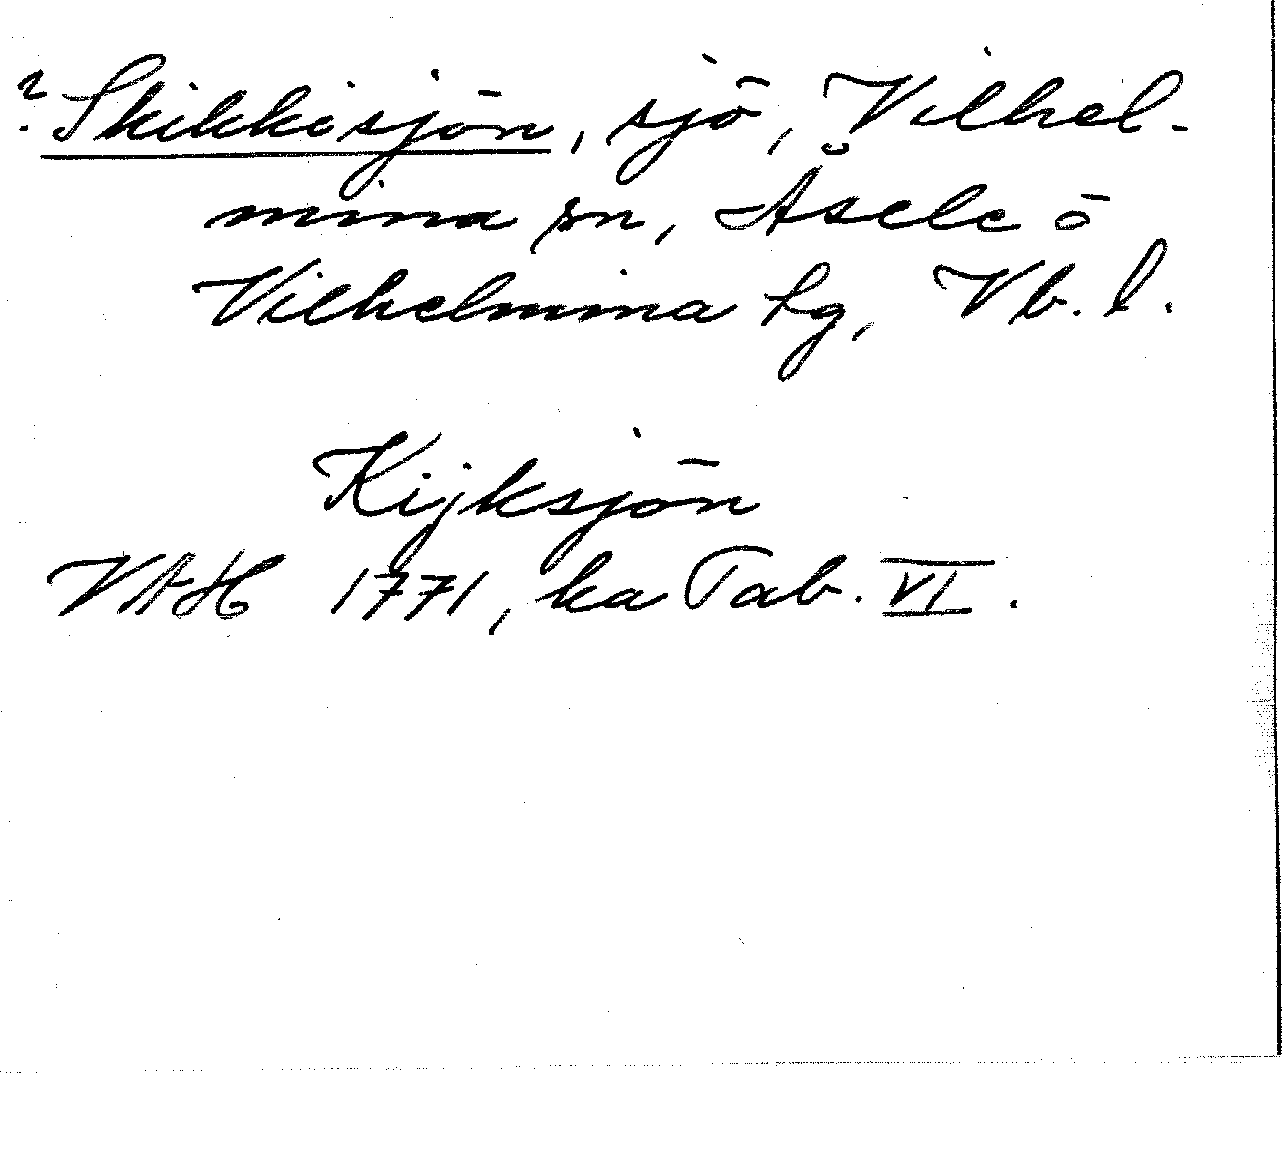 ? Skikkisjön, sjö, Vilhel-
mina sn, Åsele o
Vilhelmina tg, Vb. l.
Kijksjön
VAH 1771, ka Tab. VI.